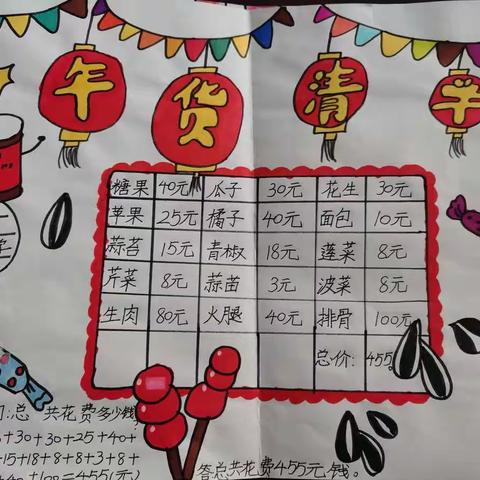 年货清单
糖果 40元 瓜子 30元 花生 30元
苹果 25元 橘子 40元 面包 10元
蒜苔 15元 青椒 18元 莲菜 8元
芹菜 8元 蒜苗 3元 波菜 8元
生肉 80元 火腿 40元 排骨 100元
总价: 455
:总共花费多少钱,
+30+30+25+40+
+15+18+8+8+3+8+
+100=455(元)
答总共花费455元钱。